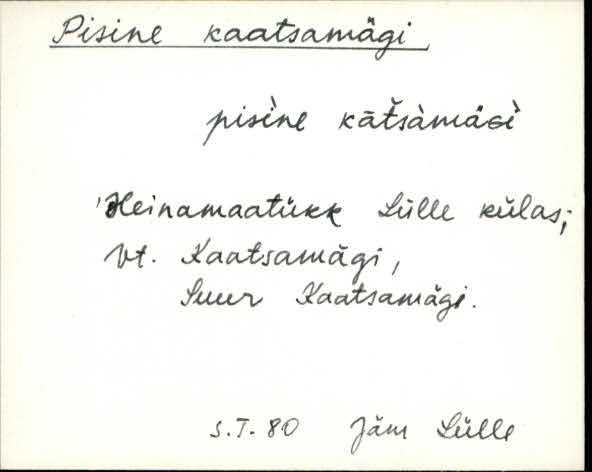 Pisine kaatsamägi
pisìne kāt̆sàmäɢì
Heinamaatükk Lülle külas;
Vt. Kaatsamägi,
Suur Kaatsamägi.
S.T. 80 Jäm Lülle